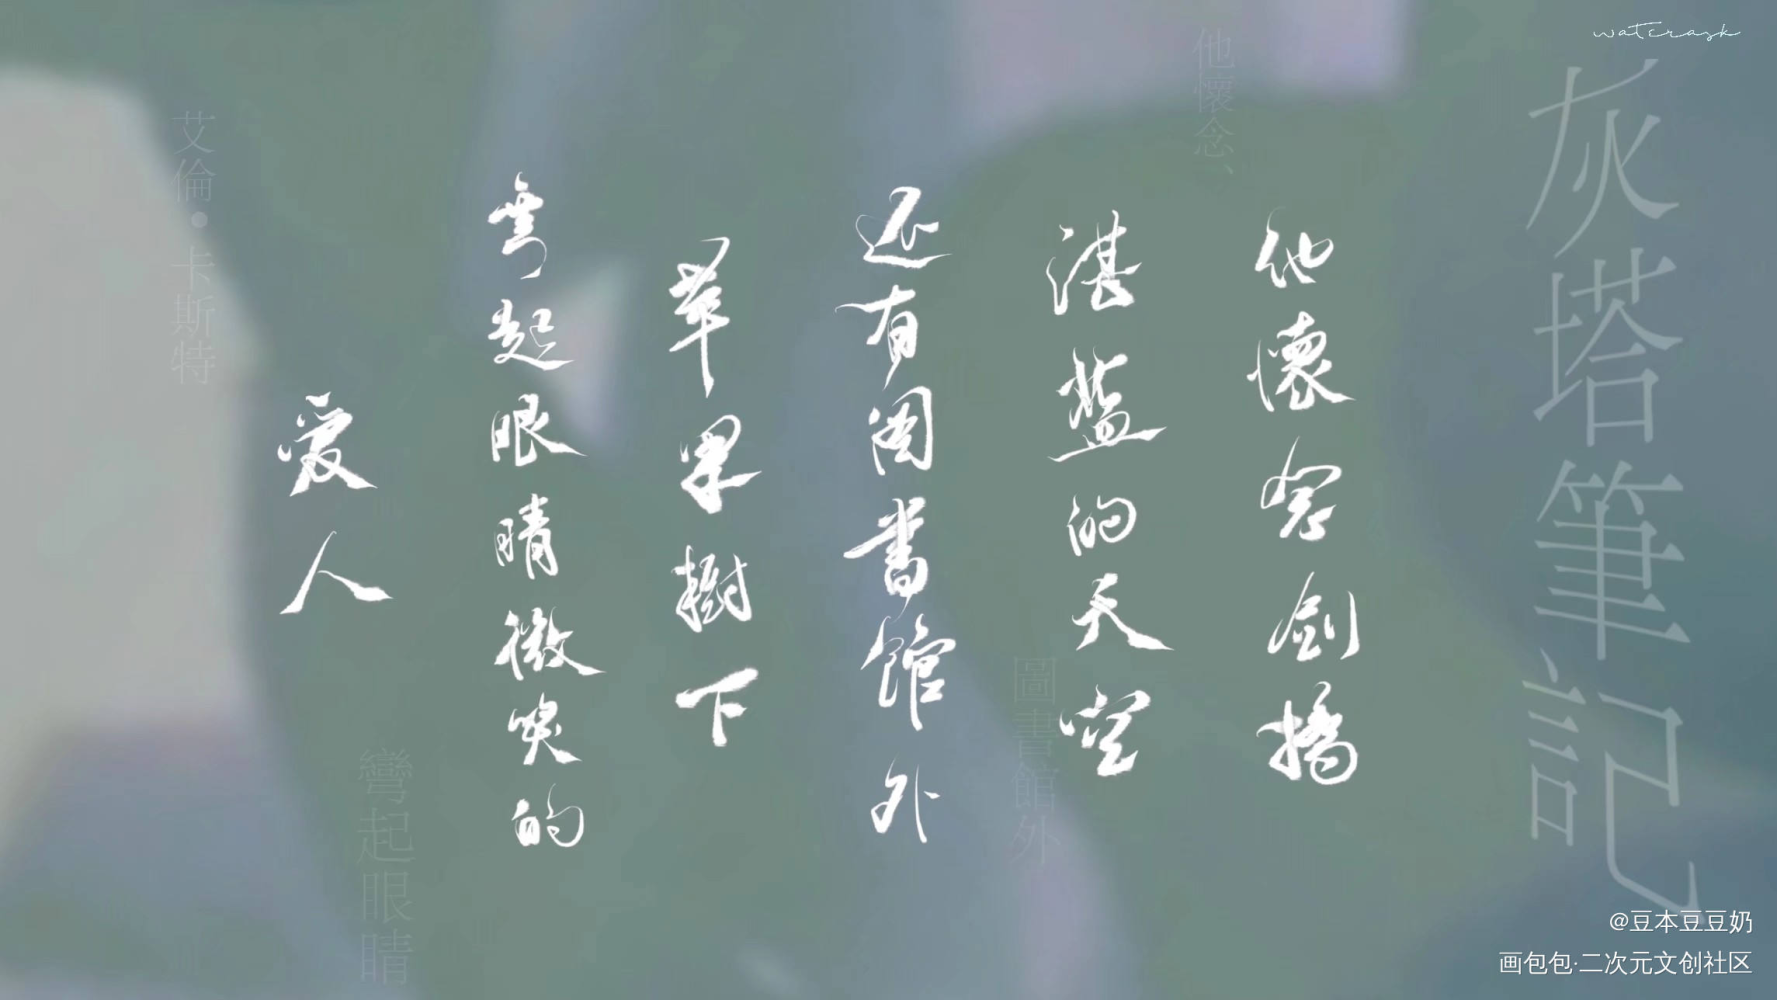 watcrask
灰塔筆記
他懷念、
他懷念剑橋
湛藍的天空
圖書館外
还有图書館外
苹果樹下
弯起眼睛微笑的
彎起眼睛
爱人
艾倫·卡斯特
@豆本豆豆奶
画包包·二次元文创社区